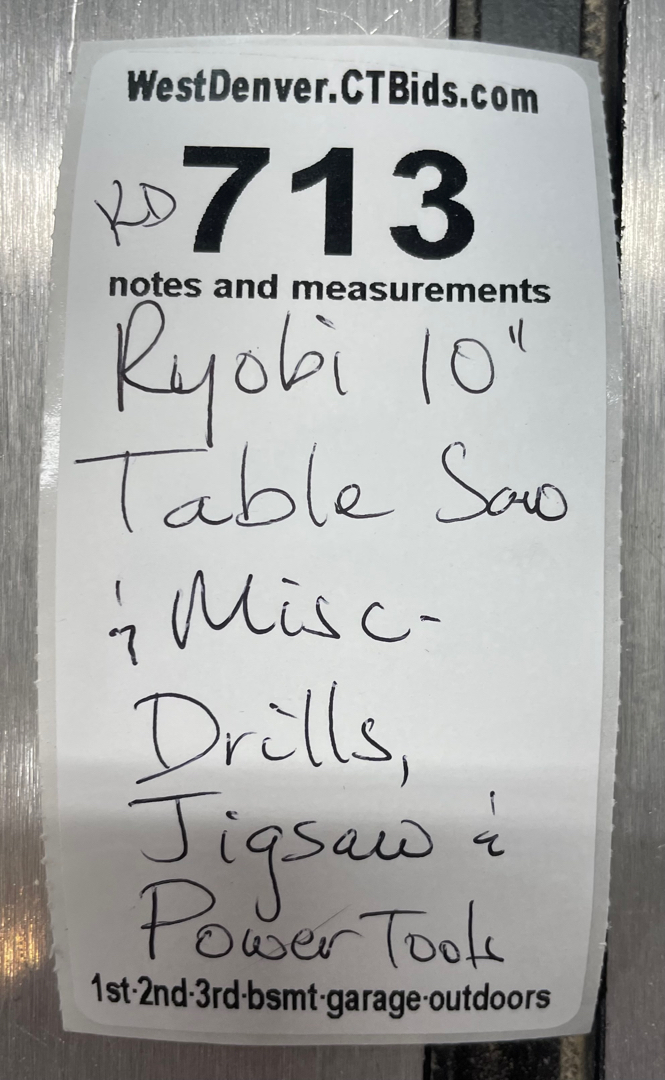 WestDenver.CTBids.com
KD 713
notes and measurements
Ryobi 10"
Table Saw
& Misc-
Drills,
Jigsaw &
Power Tools
1st·2nd·3rd·bsmt·garage·outdoors